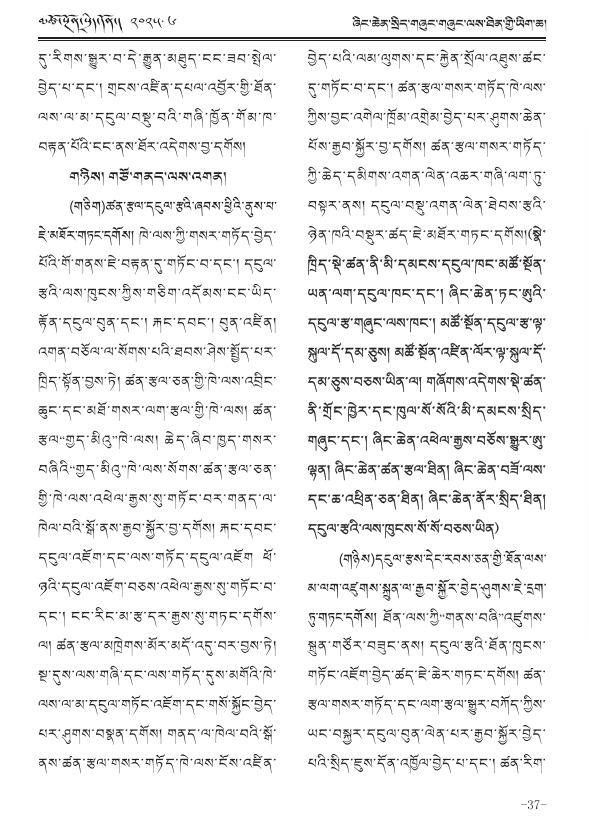 མཚོ་སྔོན་སྲིད་གཞུང་། ༢༠༢༥·༦
ཞིང་ཆེན་སྲིད་གཞུང་གཞུང་ལས་ཐིན་གྱི་ཡིག་ཆ།
དུ་རིགས་སྒྱུར་བ་དེ་རྒྱུན་མཐུད་ངང་ཟབ་སྤེལ་
བྱེད་པ་དང་། གྲངས་འཛིན་དཔལ་འབྱོར་གྱི་ཐོན་
ལས་ལ་མ་དངུལ་བསྡུ་བའི་གཞི་ཁྱོན་གོམ་ཁ་
བརྟན་པོའི་ངང་ནས་ཐོར་འདེགས་བྱ་དགོས།
གཉིས། གཙོ་གནད་ལས་འགན།
(གཅིག)ཚན་རྩལ་དངུལ་རྩའི་ཞབས་ཕྱིའི་ནུས་པ་
ཇེ་མཐོར་གཏང་དགོས། ཁེ་ལས་ཀྱི་གསར་གཏོད་བྱེད་
པོའི་གོ་གནས་ཇེ་བརྟན་དུ་གཏོང་བ་དང་། དངུལ་
རྩའི་ལས་ཁུངས་ཀྱིས་གཅིག་འདོམས་ངང་ཡིད་
རྟོན་དངུལ་བུན་དང་། རྐང་དབང་། བུན་འཛིན།
འགན་བཅོལ་ལ་སོགས་པའི་ཐབས་ཤེས་སྤྱོད་པར་
ཁྲིད་སྟོན་བྱས་ཏེ། ཚན་རྩལ་ཅན་གྱི་ཁེ་ལས་འབྲིང་
ཆུང་དང་མཐོ་གསར་ལག་རྩལ་གྱི་ཁེ་ལས། ཚན་
རྩལ་“གྱད་མིའུ”ཁེ་ལས། ཆེད་ཞིབ་ཁྱད་གསར་
བཞིའི་“གྱད་མིའུ”ཁེ་ལས་སོགས་ཚན་རྩལ་ཅན་
གྱི་ཁེ་ལས་འཕེལ་རྒྱས་སུ་གཏོང་བར་གནད་ལ་
ཁེལ་བའི་སྒོ་ནས་རྒྱབ་སྐྱོར་བྱ་དགོས། རྐང་དབང་
དངུལ་འཇོག་དང་ལས་གཏོད་དངུལ་འཇོག ཕོ་
ཉའི་དངུལ་འཇོག་བཅས་འཕེལ་རྒྱས་སུ་གཏོང་བ་
དང་། ངང་རིང་མ་རྩ་དར་རྒྱས་སུ་གཏང་དགོས་
ལ། ཚན་རྩལ་མཁྲེགས་མོར་མདོ་འདུ་བར་བྱས་ཏེ།
སྔ་དུས་ལས་གཞི་དང་ལས་གཏོད་དུས་མགོའི་ཁེ་
ལས་ལ་མ་དངུལ་གཏོང་འཇོག་དང་གསོ་སྐྱོང་བྱེད་
པར་ཤུགས་བསྣན་དགོས། གནད་ལ་ཁེལ་བའི་སྒོ་
ནས་ཚན་རྩལ་གསར་གཏོད་ཁེ་ལས་ངོས་འཛིན་
བྱེད་པའི་ལམ་ལུགས་དང་རྐྱེན་སྲོལ་འཐུས་ཚང་
དུ་གཏོང་བ་དང་། ཚན་རྩལ་གསར་གཏོད་ཁེ་ལས་
ཀྱིས་བྱང་འགེལ་ཁྲོམ་འགྲེམ་བྱེད་པར་ཤུགས་ཆེན་
པོས་རྒྱབ་སྐྱོར་བྱ་དགོས། ཚན་རྩལ་གསར་གཏོད་
ཀྱི་ཆེད་དམིགས་འགན་ལེན་འཆར་གཞི་ལག་ཏུ་
བསྟར་ནས། དངུལ་བསྡུ་འགན་ལེན་ཐེབས་རྩའི་
ཉེན་ཁའི་བསྡུར་ཚད་ཇེ་མཐོར་གཏང་དགོས།(སྣེ་
ཁྲིད་སྡེ་ཚན་ནི་མི་དམངས་དངུལ་ཁང་མཚོ་སྔོན་
ཡན་ལག་དངུལ་ཁང་དང་། ཞིང་ཆེན་ཏང་ཨུའི་
དངུལ་རྩ་གཞུང་ལས་ཁང་། མཚོ་སྔོན་དངུལ་རྩ་ལྟ་
སྐུལ་དོ་དམ་ཅུས། མཚོ་སྔོན་འཛིན་ལོར་ལྟ་སྐུལ་དོ་
དམ་ཅུས་བཅས་ཡིན་ལ། གཞོགས་འདེགས་སྡེ་ཚན་
ནི་གྲོང་ཁྱེར་དང་ཁུལ་སོ་སོའི་མི་དམངས་སྲིད་
གཞུང་དང་། ཞིང་ཆེན་འཕེལ་རྒྱས་བཅོས་སྒྱུར་ཨུ་
ལྷན། ཞིང་ཆེན་ཚན་རྩལ་ཐིན། ཞིང་ཆེན་བཟོ་ལས་
དང་ཆ་འཕྲིན་ཅན་ཐིན། ཞིང་ཆེན་ནོར་སྲིད་ཐིན།
དངུལ་རྩའི་ལས་ཁུངས་སོ་སོ་བཅས་ཡིན)
(གཉིས)དངུལ་རྩས་དེང་རབས་ཅན་གྱི་ཐོན་ལས་
མ་ལག་འཛུགས་སྐྲུན་ལ་རྒྱབ་སྐྱོར་བྱེད་ཤུགས་ཇེ་དྲག་
ཏུ་གཏང་དགོས། ཐོན་ལས་ཀྱི་“གནས་བཞི”འཛུགས་
སྐྲུན་གཙོར་བཟུང་ནས། དངུལ་རྩའི་ཐོན་ཁུངས་
གཏོང་འཇོག་བྱེད་ཚད་ཇེ་ཆེར་གཏང་དགོས། ཚན་
རྩལ་གསར་གཏོད་དང་ལག་རྩལ་སྒྱུར་བཀོད་ཀྱིས་
ཡང་བསྐྱར་དངུལ་བུན་ལེན་པར་རྒྱབ་སྐྱོར་བྱེད་
པའི་སྲིད་ཇུས་དོན་འཁྱོལ་བྱེད་པ་དང་། ཚན་རིག་
-37-